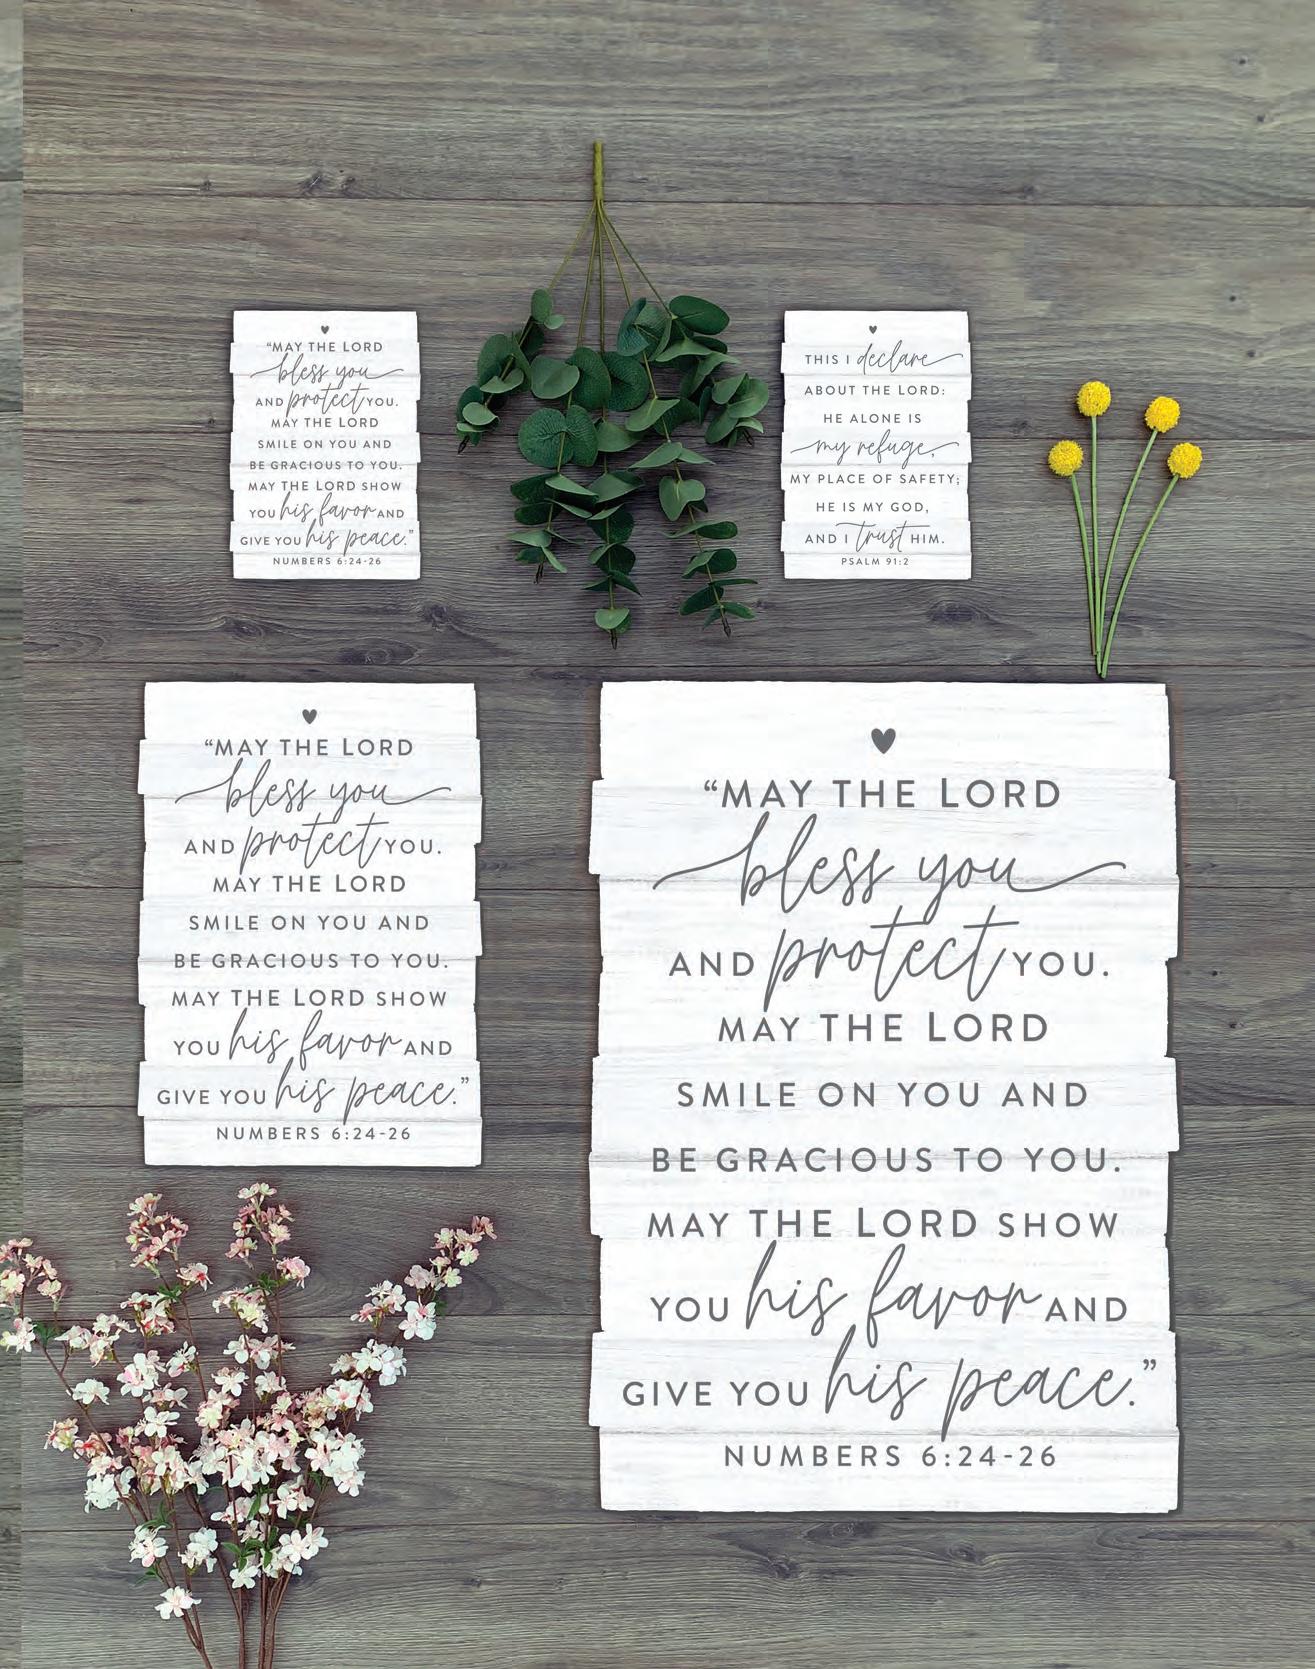 “MAY THE LORD
bless you
AND protect YOU.
MAY THE LORD
SMILE ON YOU AND
BE GRACIOUS TO YOU.
MAY THE LORD SHOW
YOU his favor AND
GIVE YOU his peace.”
NUMBERS 6:24-26
THIS I declare
ABOUT THE LORD:
HE ALONE IS
my refuge,
MY PLACE OF SAFETY;
HE IS MY GOD,
AND I trust HIM.
PSALM 91:2
“MAY THE LORD
bless you
AND protect YOU.
MAY THE LORD
SMILE ON YOU AND
BE GRACIOUS TO YOU.
MAY THE LORD SHOW
YOU his favor AND
GIVE YOU his peace.”
NUMBERS 6:24-26
“MAY THE LORD
bless you
AND protect YOU.
MAY THE LORD
SMILE ON YOU AND
BE GRACIOUS TO YOU.
MAY THE LORD SHOW
YOU his favor AND
GIVE YOU his peace.”
NUMBERS 6:24-26